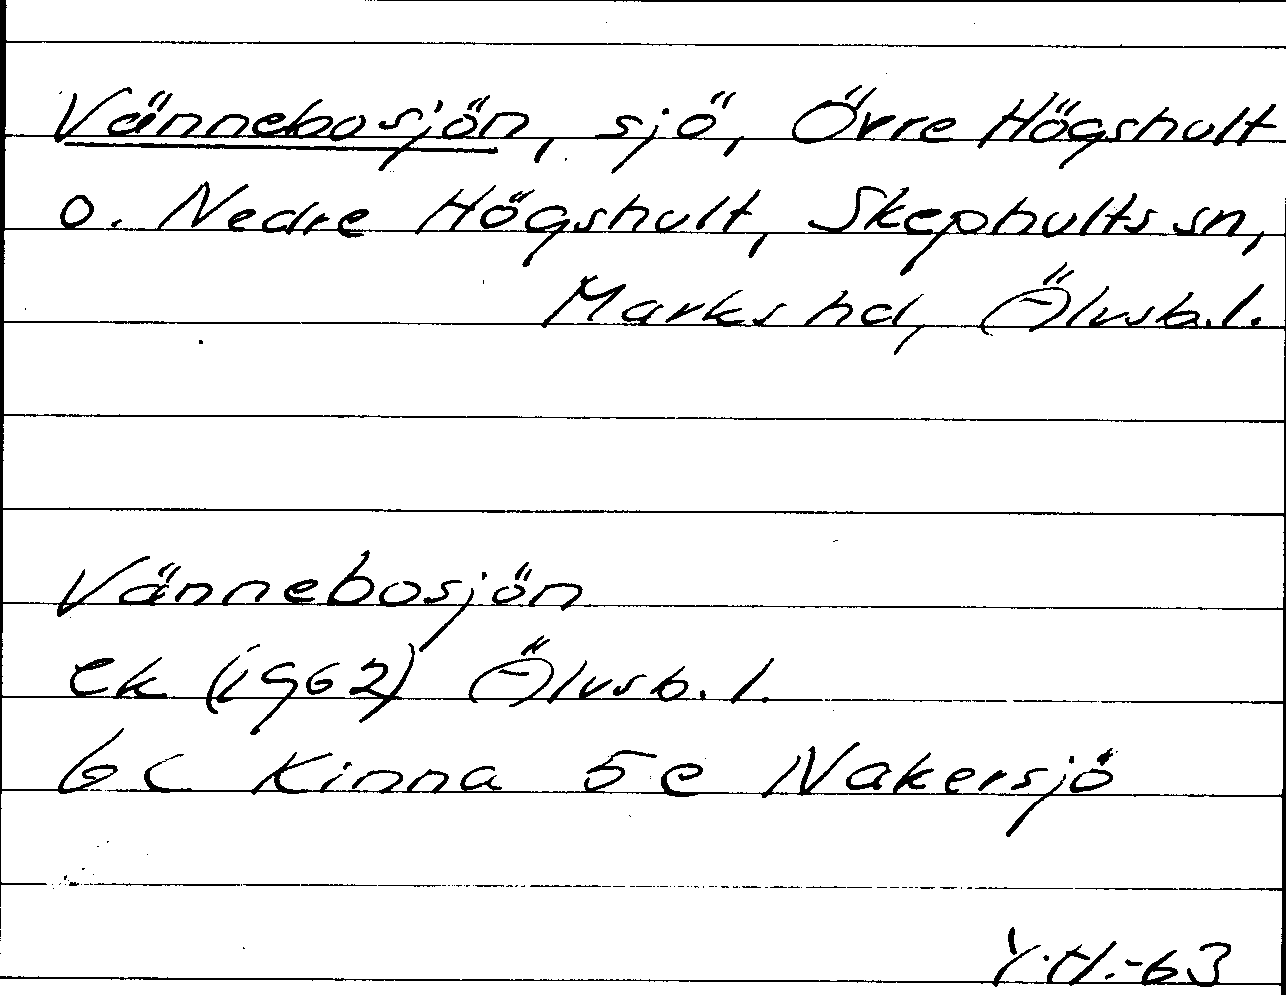 Vännebosjön, sjö, Övre Högshult
o. Nedre Högshult, Skephults sn,
Marks hd, Älvsb.l.
Vännebosjön
ek (1962) Älvsb.l.
6c Kinna 5e Nakersjö
Y.H.-63